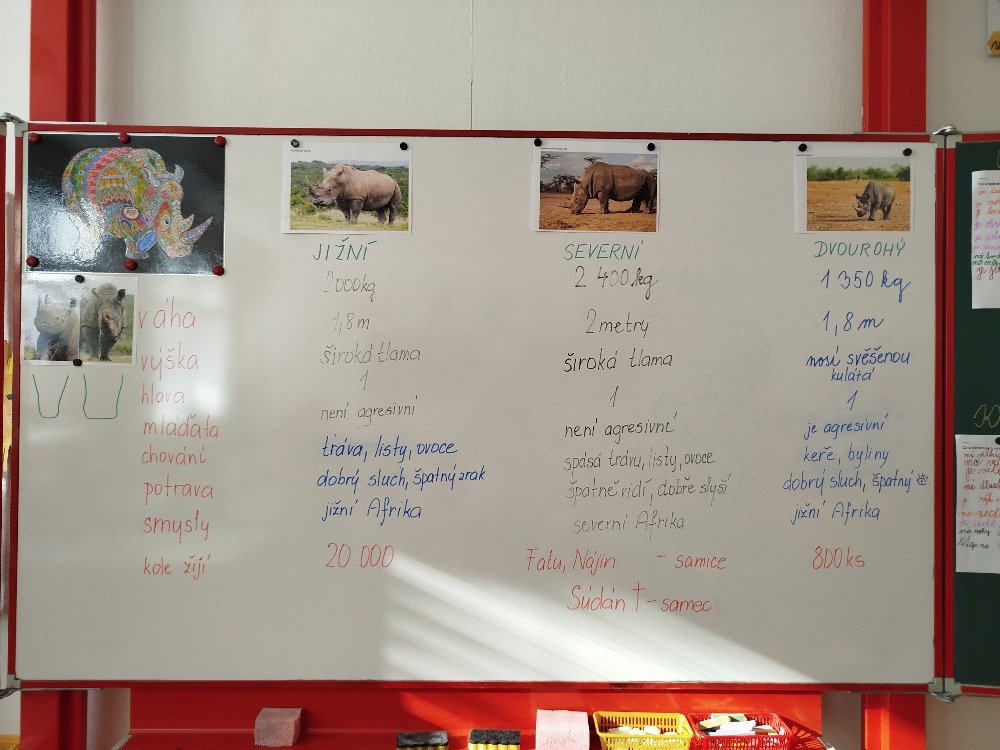 JIŽNÍ SEVERNÍ DVOUROHÝ
váha 2000kg 2 400kg 1 350 kg
výška 1,8 m 2 metry 1,8 m
hlava široká tlama široká tlama nosí svěšenou
kulatá
mláďata 1 1 1
chování není agresivní není agresivní je agresivní
potrava tráva, listy, ovoce spásá trávu, listy, ovoce keře, byliny
smysly dobrý sluch, špatný zrak špatně vidí, dobře slyší dobrý sluch, špatný
jižní Afrika severní Afrika jižní Afrika
kole žijí 20.000 Fatu, Nájin - samice 800 ks
Súdán † - samec